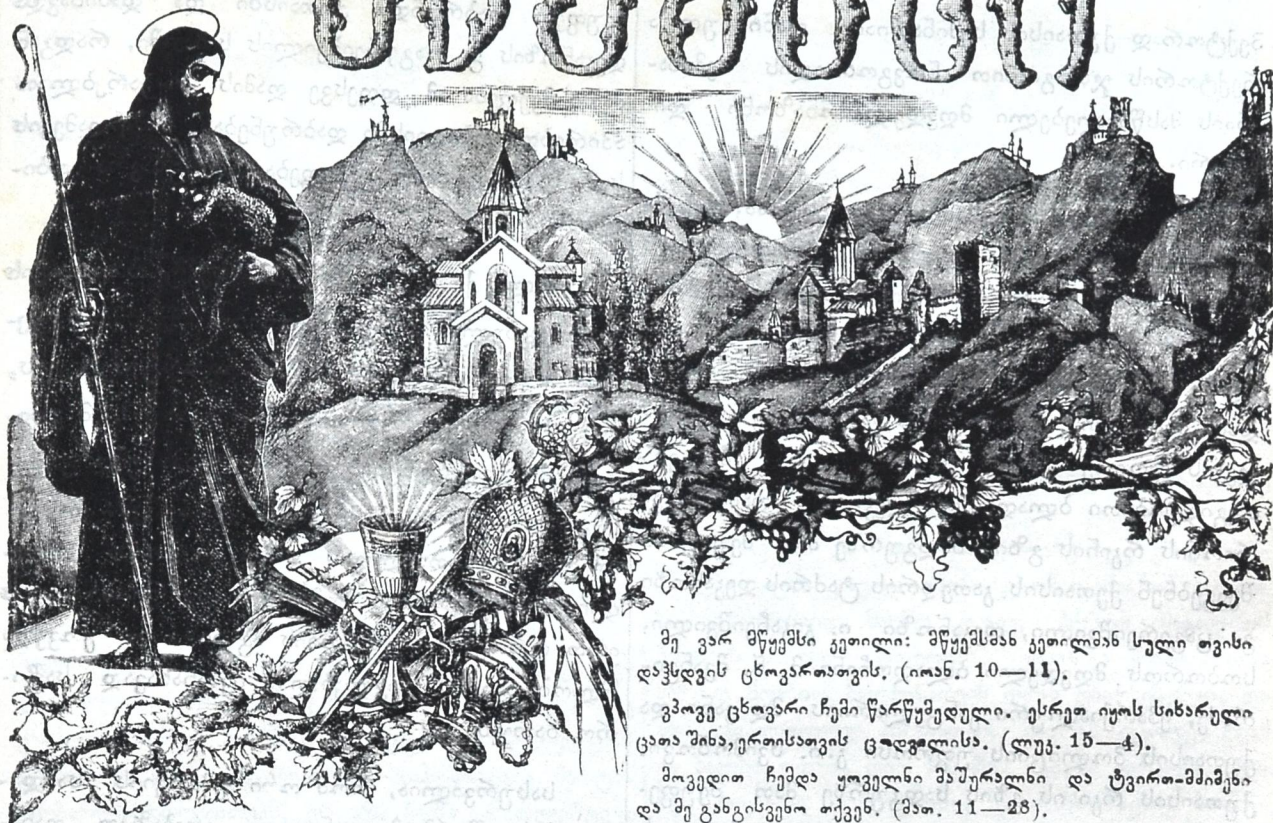 მე ვარ მწყემსი კეთილი: მწყემსმან კეთილმან სული თვისი
დაჰსდვის ცხოვართათვის. (იოან. 10—11).
ვპოვე ცხოვარი ჩემი წარწყმედული. ესრეთ იყოს სიხარული
ცათა შინა ერთისათვის ცოდვილისა. (ლუკ. 15—4).
მოვედით ჩემდა ყოველნი მაშურალნი და ტვირთ-მძიმენი
და მე განგისვენო თქვენ. (მათ. 11—28).